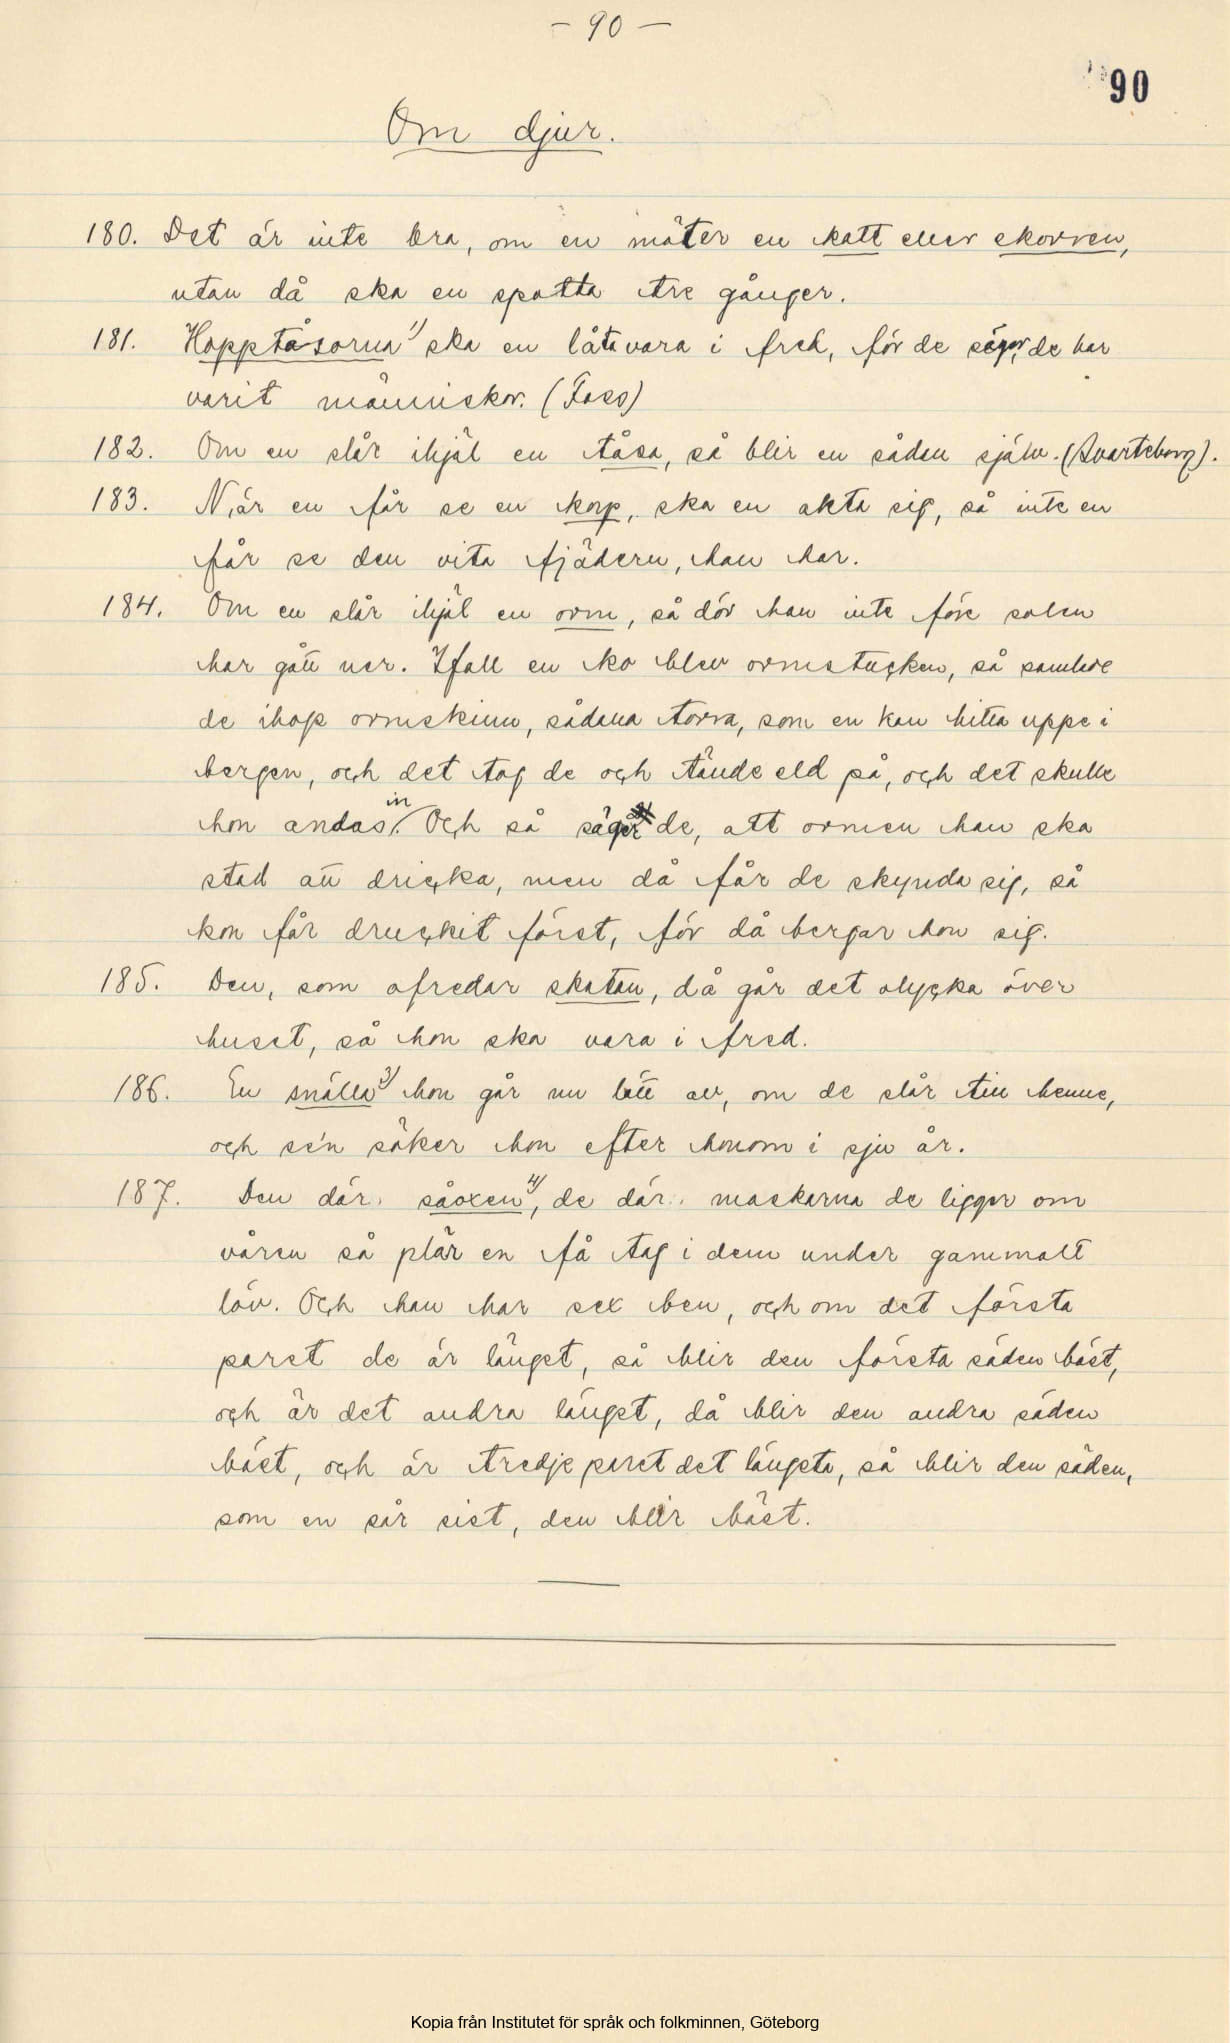 – 90 –
90
Om djur.
180. Det är inte bra, om en möter en katt eller ekorren,
utan då ska en spotta tre gånger.
181. Hopptåsorna 1) ska en låta vara i fred, för de säger, de har
varit människor. (Foss)
182. Om en slår ihjäl en tåsa, så blir en sådan själv. (Svarteborg).
183. När en får se en korp, ska en akta sig, så inte en
får se den vita fjädern, han har.
184. Om en slår ihjäl en orm, så dör han inte före solen
har gått ner. Ifall en ko blev ormstucken, så samlade
de ihop ormskinn, sådana torra, som en kan hitta uppe i
bergen, och det tog de och tände eld på, och det skulle
hon andas in. Och så säger de, att ormen han ska
stad att dricka, men då får de skynda sig, så
kon får druckit först, för då bergar hon sig.
185. Den, som ofredar skatan, då går det olycka över
huset, så hon ska vara i fred.
186. En snälla 3) hon går nu lätt av, om de slår till henne,
och se'n söker hon efter honom i sju år.
187. Den där såoxen 4), de där maskarna de ligger om
våren så plär en få tag i dem under gammalt
löv. Och han har sex ben, och om det första
paret de är längst, så blir den första säden bäst,
och är det andra längst, då blir den andra säden
bäst, och är tredje paret det längsta, så blir den säden,
som en sår sist, den blir bäst.
Kopia från Institutet för språk och folkminnen, Göteborg